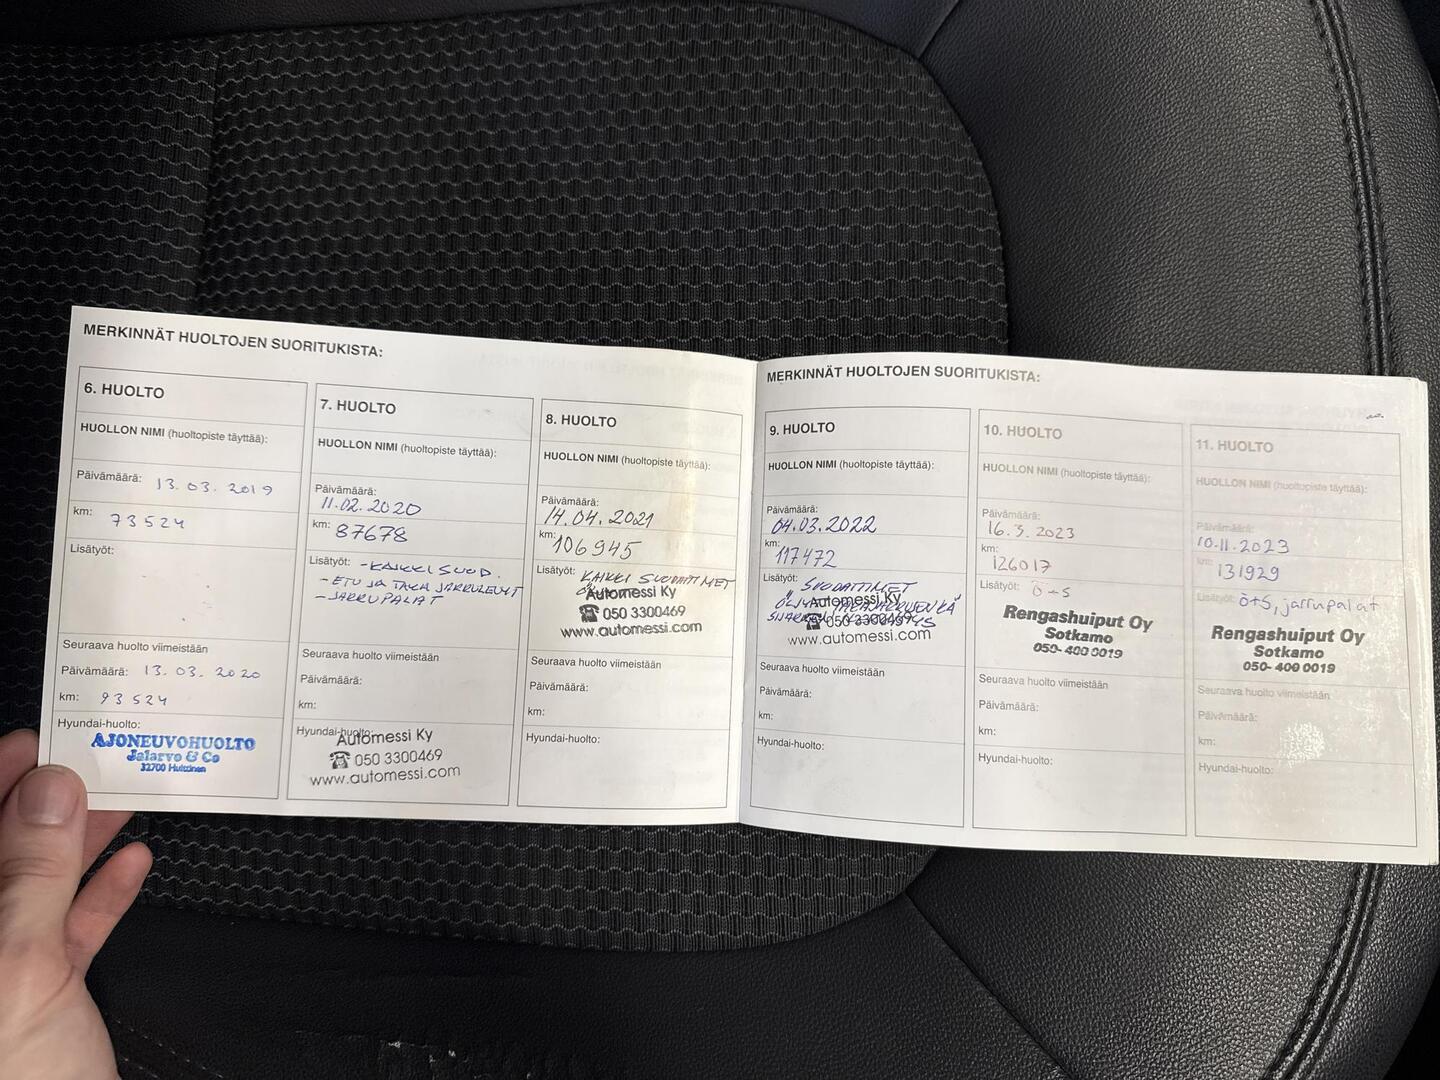 MERKINNÄT HUOLTOJEN SUORITUKISTA:
6. HUOLTO
HUOLLON NIMI (huoltopiste täyttää):
Päivämäärä: 13.03.2019
km: 73524
Lisätyöt:
Seuraava huolto viimeistään
Päivämäärä: 13.03.2020
km: 93524
Hyundai-huolto:
AJONEUVOHUOLTO
Jalarvo & Co
32700 Huittinen
7. HUOLTO
HUOLLON NIMI (huoltopiste täyttää):
Päivämäärä:
11.02.2020
km: 87678
Lisätyöt: -KAIKKI SUOD.
- ETU JA TAKA JARRULEVYT
- JARRUPALAT
Seuraava huolto viimeistään
Päivämäärä:
km:
Hyundai-huolto:
Automessi Ky
050 3300469
www.automessi.com
8. HUOLTO
HUOLLON NIMI (huoltopiste täyttää):
Päivämäärä:
14.04.2021
km: 106945
Lisätyöt: KAIKKI SUODATTIMET
Automessi Ky
050 3300469
www.automessi.com
Seuraava huolto viimeistään
Päivämäärä:
km:
Hyundai-huolto:
MERKINNÄT HUOLTOJEN SUORITUKISTA:
9. HUOLTO
HUOLLON NIMI (huoltopiste täyttää):
Päivämäärä:
04.03.2022
km:
117472
Lisätyöt: SUODATTIMET
Automessi Ky
050 3300469
www.automessi.com
Seuraava huolto viimeistään
Päivämäärä:
km:
Hyundai-huolto:
10. HUOLTO
HUOLLON NIMI (huoltopiste täyttää):
Päivämäärä:
16.3.2023
km:
126017
Lisätyöt: Ö+S
Rengashuiput Oy
Sotkamo
050- 400 0019
Seuraava huolto viimeistään
Päivämäärä:
km:
Hyundai-huolto:
11. HUOLTO
HUOLLON NIMI (huoltopiste täyttää):
Päivämäärä:
10.11.2023
km: 131929
Lisätyöt: Ö+S, jarrupalat
Rengashuiput Oy
Sotkamo
050- 400 0019
Seuraava huolto viimeistään
Päivämäärä:
km:
Hyundai-huolto: